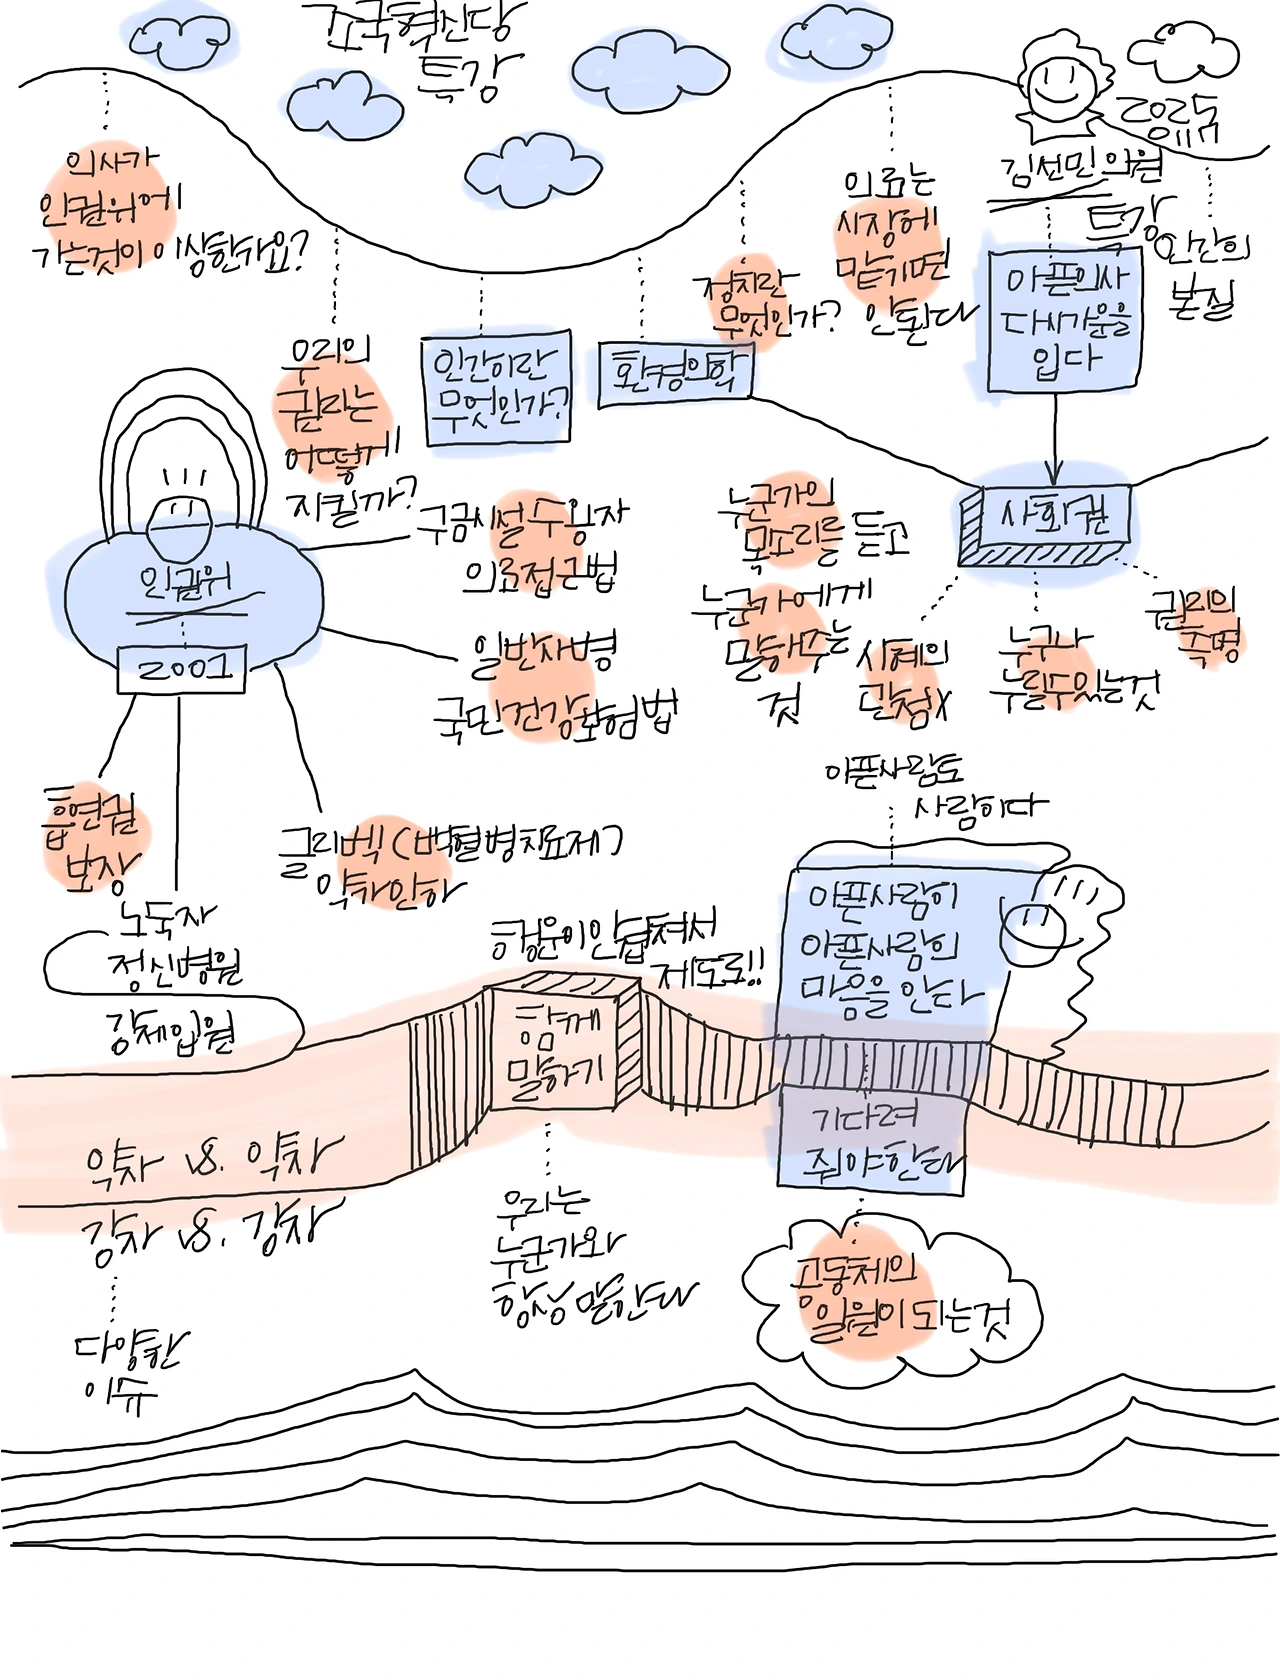 조국혁신당
특강
김선민 의원
특강
의사가
인권위에
가는것이 이상한가요?
우리의
권리는
어떻게
지킬까?
인간이란
무엇인가?
환경의학
정치란
무엇인가?
의료는
시장에
맡기면
안된다
아픈의사
다시가운을
입다
인간의
본질
사회권
누군가의
목소리를 듣고
누군가에게
말해주는
것
시혜의
관점X
누구나
누릴수있는것
권리의
측명
인권위
2001
구금시설 수용자
의료접근법
일반자병
국민건강보험법
흡연권
보장
노둑자
정신병원
강제입원
글리벡 (백혈병치료제)
약착인하
행운이안겹쳐서
제도로!!
함께
말하기
우리는
누군가와
항상 말한다
아픈사람도
사람이다
아픈사람이
아픈사람의
마음을 안다
기다려
줘야한다
공동체의
일원이 되는것
약자 vs. 약자
강자 vs. 강자
다양한
이슈